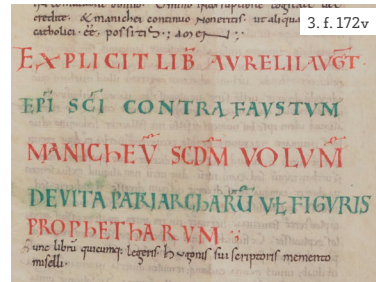 3. f. 172v
credite. & manichei continuo
catholici. eē. possitis; amen
EXPLICIT LIB̄ AVRELII AVGT̄.
EP̄I SC̄I CONTRA FAVSTVM
MANICHEV̄ SCDM̄ VOLVM̄
DE VITA PATRIARCHARŪ VEL FIGVRIS
PROPHETHARVM
hunc librū quicumq; legeris hugonis sui scriptoris memento
miselli.